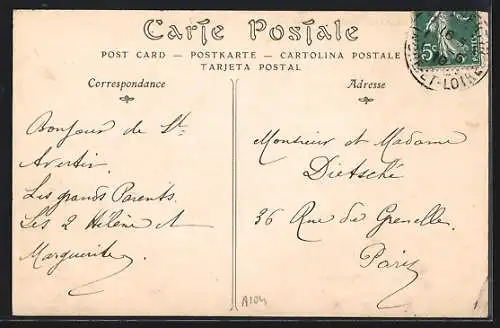 Carte Postale
POST CARD — POSTKARTE — CARTOLINA POSTALE
TARJETA POSTAL
Correspondance
Adresse
Bonjour de St
Avertin.
Les grands Parents.
Les 2 Hélène et
Marguerite.
Monsieur et Madame
Dietsché
36 Rue de Grenelle.
Paris
5c
ET-LOIRE
A104